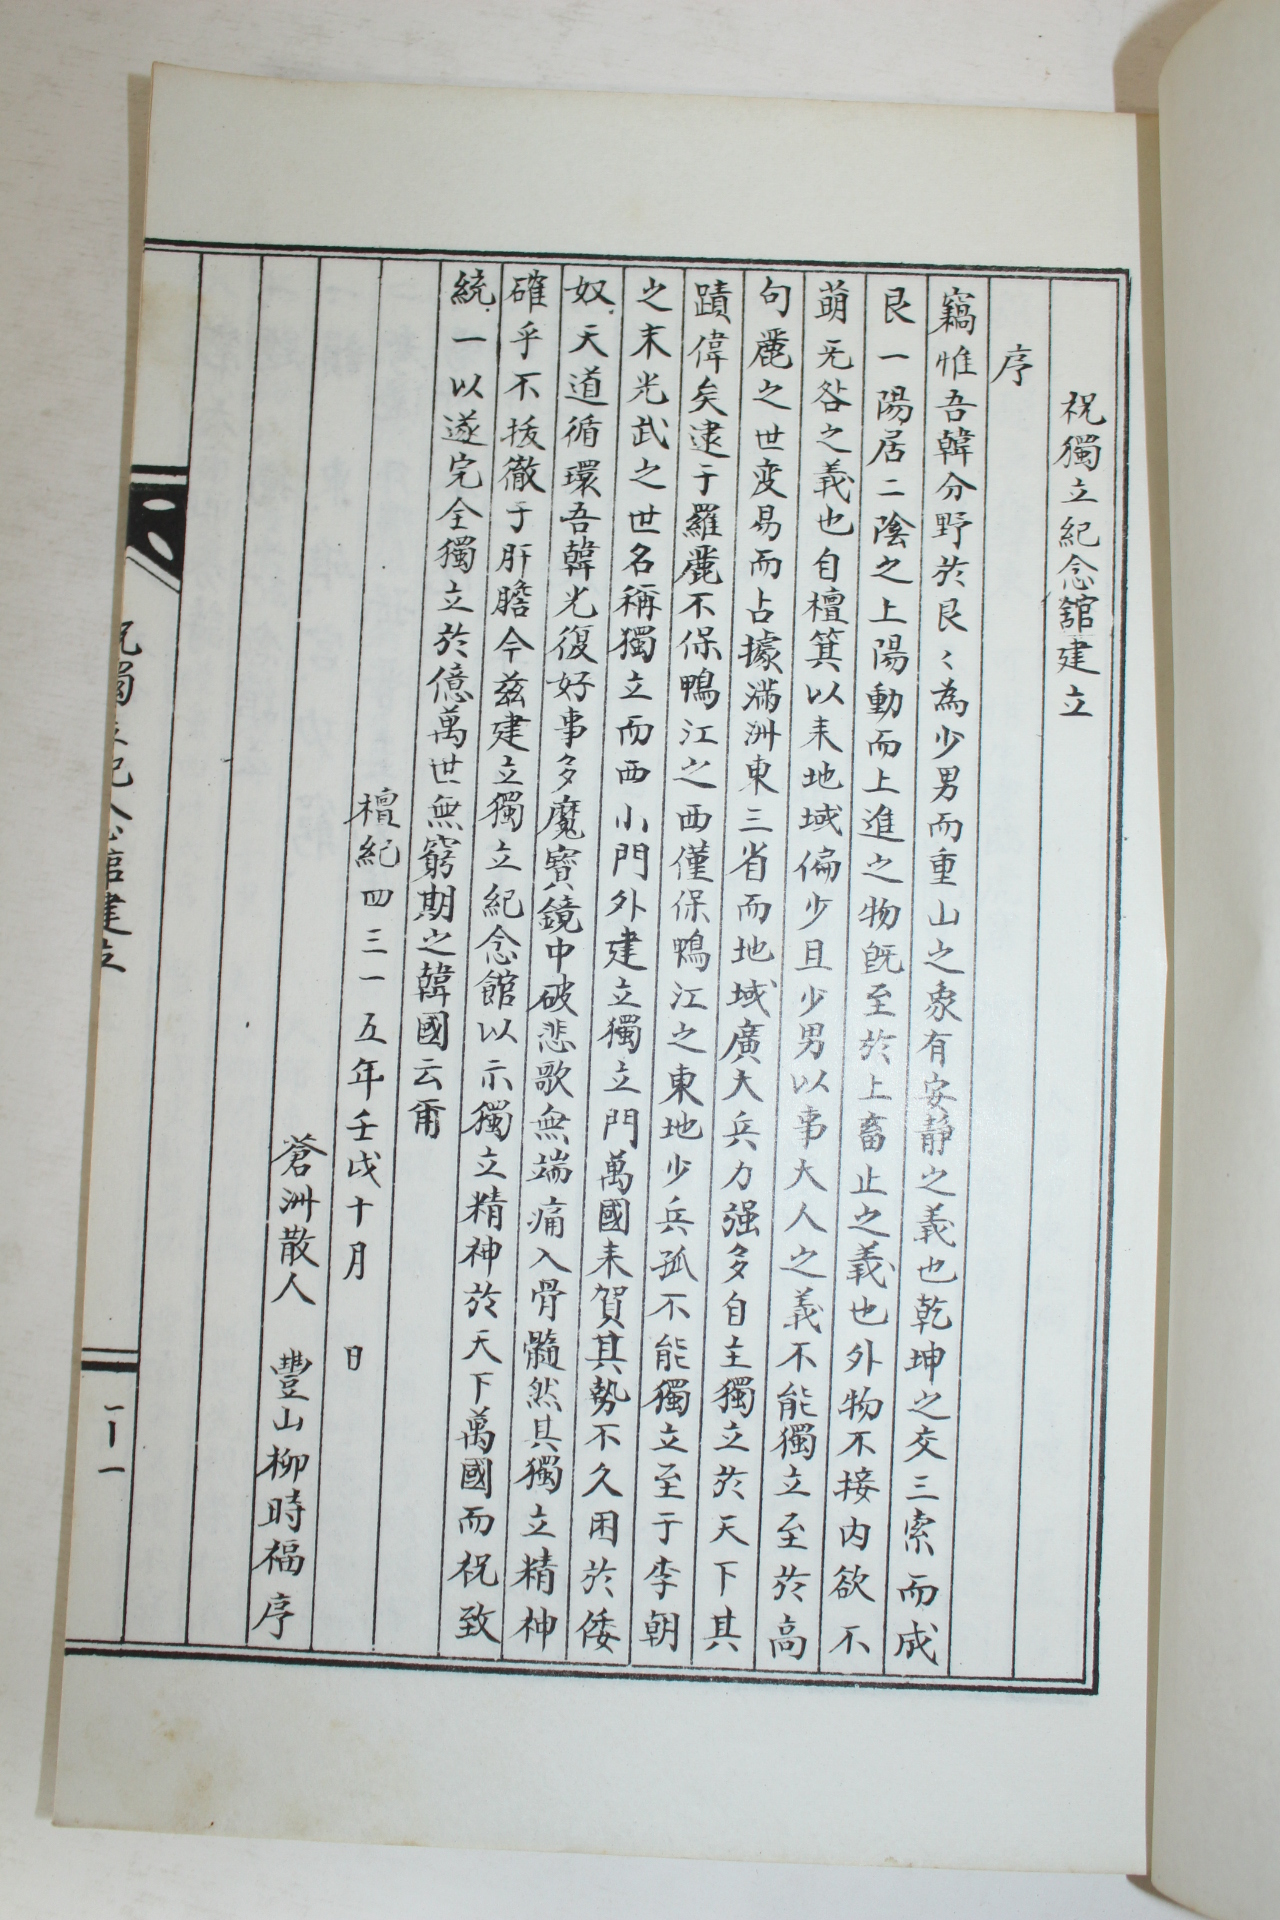 祝獨立紀念舘建立
序
竊惟吾韓分野於艮〻為少男而重山之象有安靜之義也乾坤之交三索而成
艮一陽居二陰之上陽動而上進之物旣至於上畜止之義也外物不接內欲不
萌无咎之義也自檀箕以來地域偏少且少男以事大人之義不能獨立至於高
句麗之世変易而占據滿洲東三省而地域廣大兵力强多自主獨立於天下其
蹟偉矣逮于羅麗不保鴨江之西僅保鴨江之東地少兵孤不能獨立至于李朝
之末光武之世名稱獨立而西小門外建立獨立門萬國来賀其勢不久困於倭
奴天道循環吾韓光復好事多魔寶鏡中破悲歌無端痛入骨髓然其獨立精神
確乎不拔徹于肝膽今玆建立獨立紀念館以示獨立精神於天下萬國而祝致
統一以遂完全獨立於億萬世無窮期之韓國云爾
檀紀四三一五年壬戌十月　日
蒼洲散人　豐山柳時福序
祝獨立紀念館建立
一